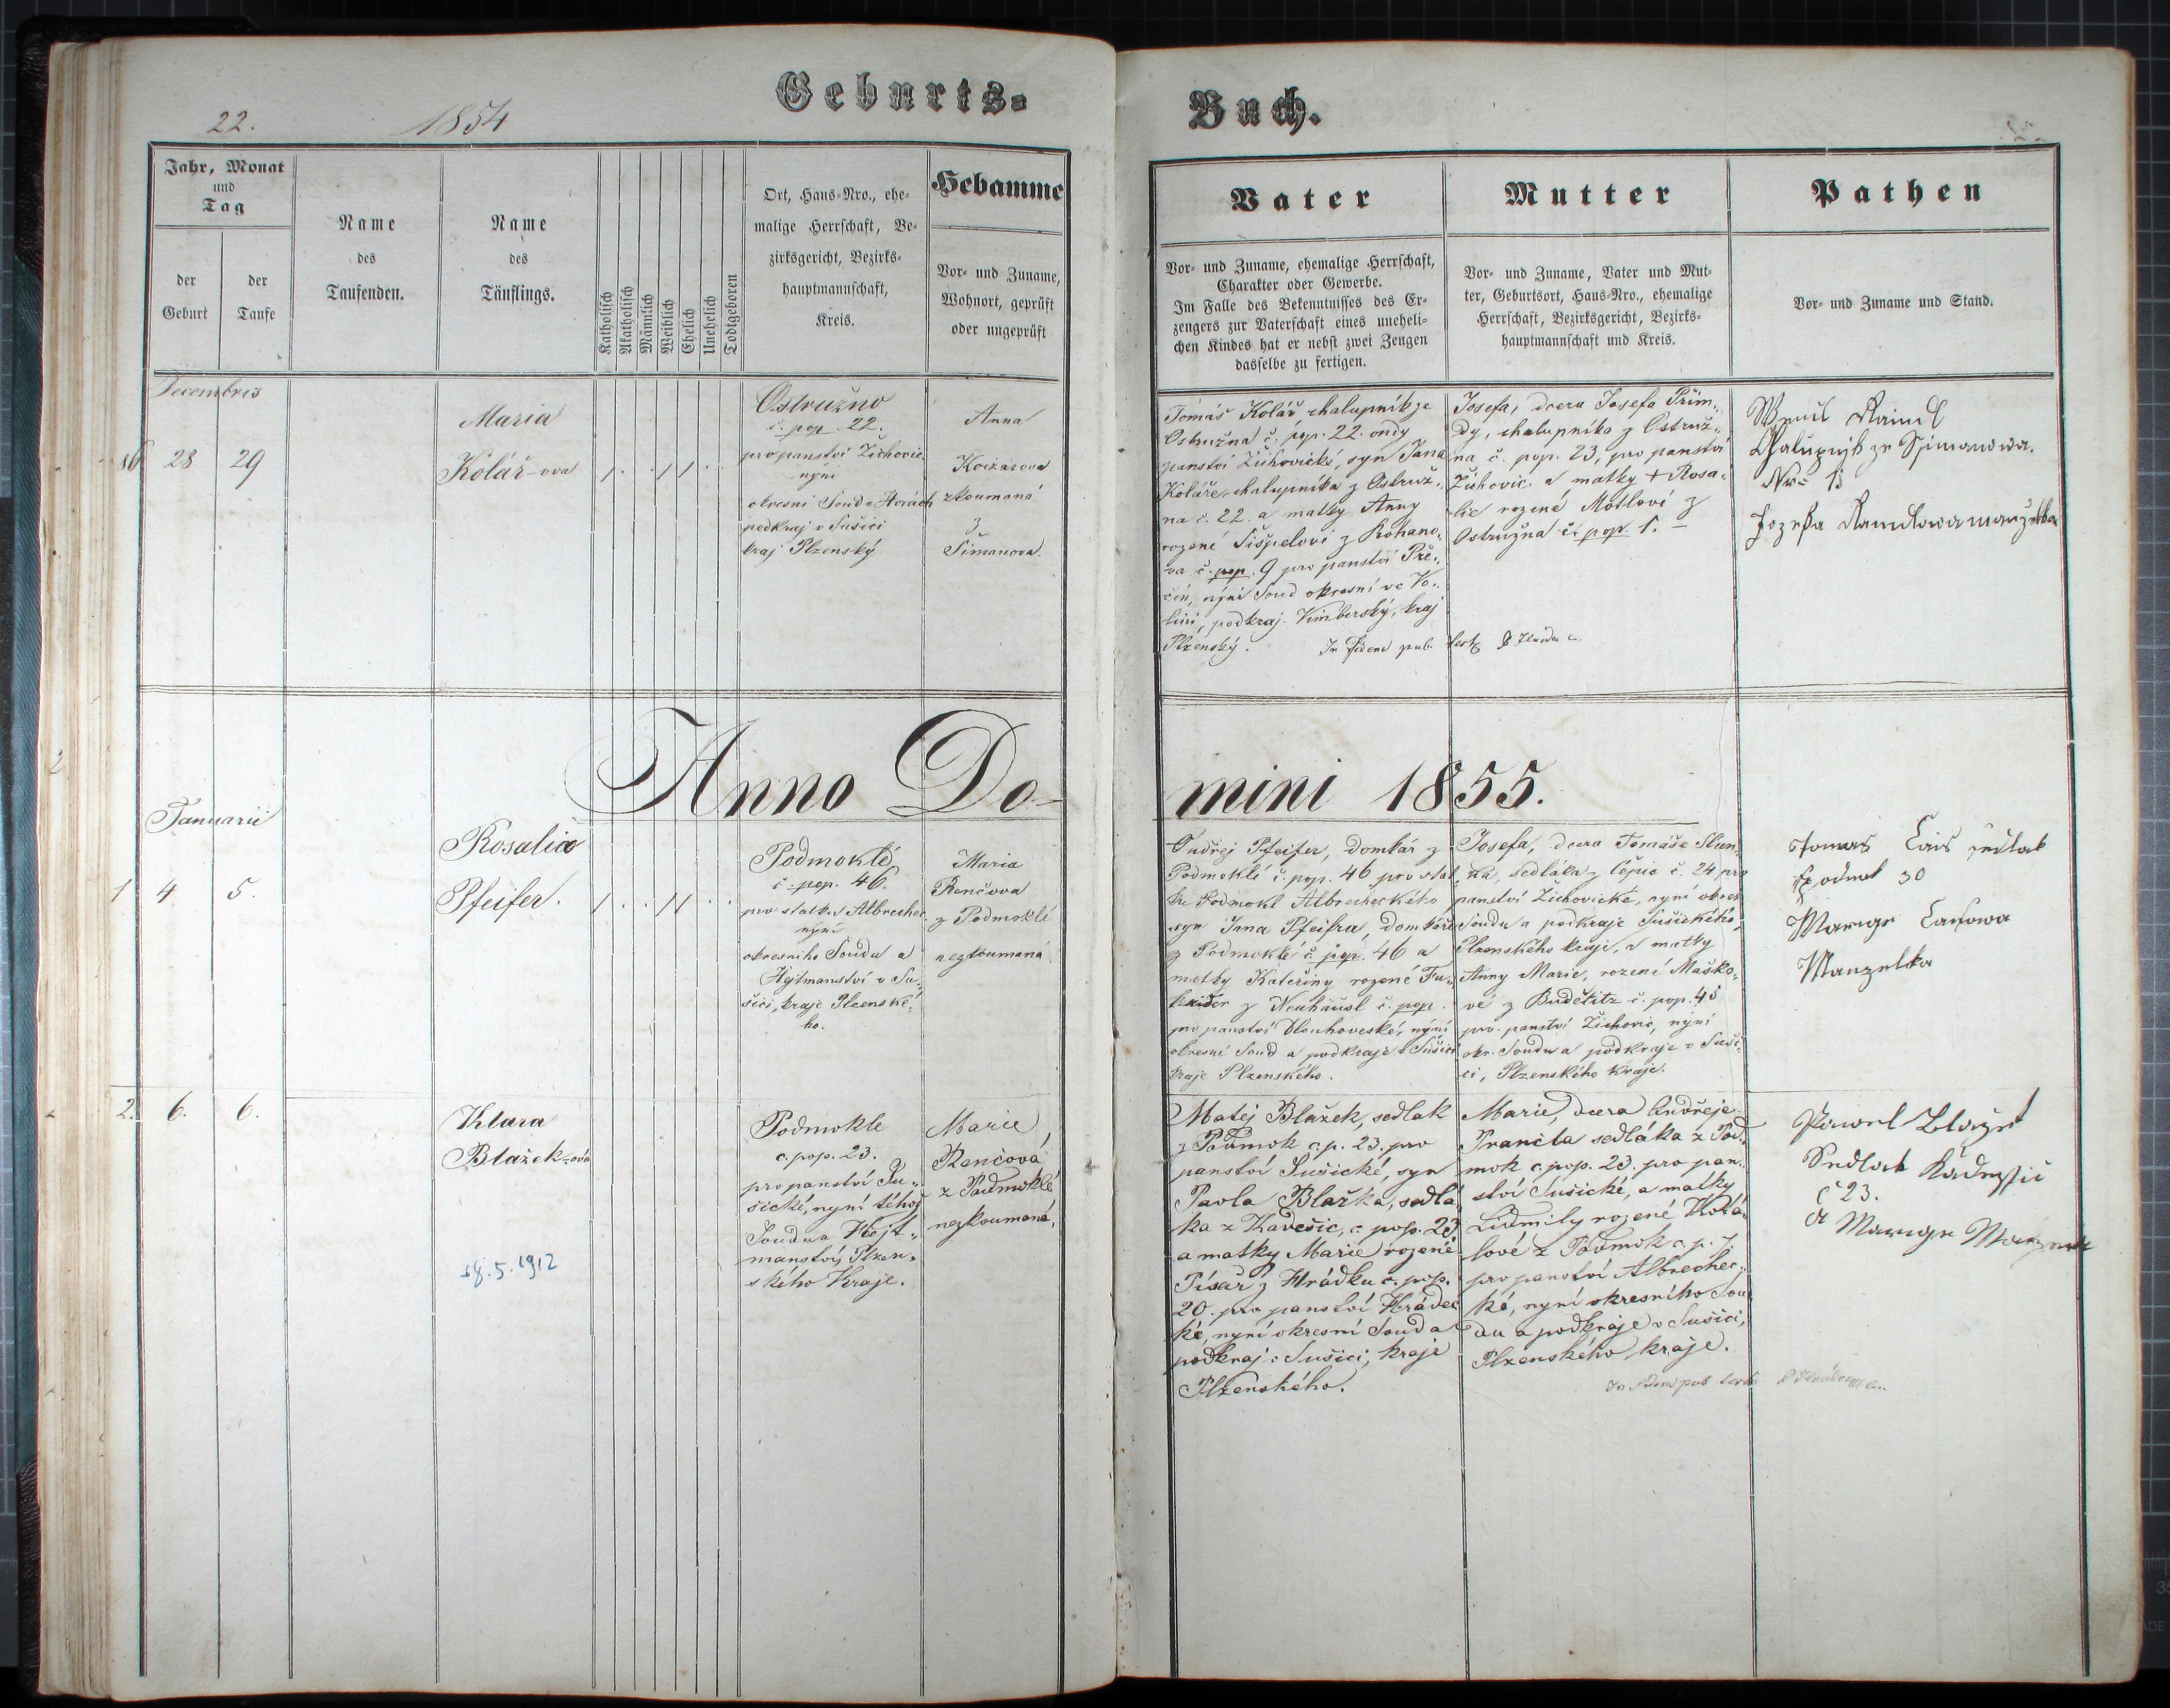 Geburts-
Buch.
22.
1854
Jahr, Monat
und
Tag
der
Geburt
der
Taufe
Name
des
Taufenden.
Name
des
Täuflings.
Katholisch
Akatholisch
Männlich
Weiblich
Ehelich
Unehelich
Todtgeboren
Ort, Haus-Nro., ehe-
malige Herrschaft, Be-
zirksgericht, Bezirks-
hauptmannschaft,
Kreis.
Hebamme
Vor- und Zuname,
Wohnort, geprüft
oder ungeprüft
Vater
Vor- und Zuname, ehemalige Herrschaft,
Charakter oder Gewerbe.
Im Falle des Bekenntnisses des Er-
zeugers zur Vaterschaft eines uneheli-
chen Kindes hat er nebst zwei Zeugen
dasselbe zu fertigen.
Mutter
Vor- und Zuname, Vater und Mut-
ter, Geburtsort, Haus-Nro., ehemalige
Herrschaft, Bezirksgericht, Bezirks-
hauptmannschaft und Kreis.
Pathen
Vor- und Zuname und Stand.
Decembris
28
29
Maria
Kolář-ova
Ostružno
č. pop. 22.
pro panství Žichovic.
nyní
okresní Soud v Horách
podkraj v Sušici
kraj Plzenský
Anna
zkoumaná
z
Šimanova.
Tomáš Kolář chalupník ze
Ostružna č. pop. 22. ondy
panství Žichovické, syn Jana
Koláře, chalupníka z Ostruž-
na č. 22. a matky Anny
rozené Šišpelové z Rohano-
va č. pop. 9 pro panství Pře-
čín, nyní Soud okresní ve Vo-
lini, podkraj Vimberský, kraj
Plzenský.
Josefa, dcera Josefa Prim-
dy, chalupníka z Ostruž-
na č. pop. 23, pro panství
Žichovic. a matky + Rosa-
lie rozené Motlové z
Ostružna č. pop. 1.
Anno Do-
mini 1855.
Januarii
1
4
5.
Rosalia
Pfeifer.
Podmoklé
č. pop. 46.
pro statek Albrechec.
nyní
okresního Soudu a
Hejtmanství v Su-
šici, kraje Plzenské-
ho.
Maria
Renčova
z Podmoklé
nezkoumaná
Ondřej Pfeifer, domkář z
Podmoklé č. pop. 46 pro stat-
ku Podmokl Albrecheckého
syn Jana Pfeifra, domkáře
z Podmoklé č. pop. 46 a
matky Kateřiny rozené Fu-
z Neuhäusl č. pop.
pro panství Dlouhoveské, nyní
okresní Soud a podkraje v Sušici
kraje Plzenského.
Josefa, dcera Tomáše Slun-
ka, sedláka z Čepic č. 24 pro
panství Žichovické, nyní okres
Soudu a podkraje Sušického,
Plzenského kraje, a matky
Anny Marie, rozené Maško-
vé z Budětitz č. pop. 45
pro. panství Žichovic, nyní
okr. Soudu a podkraje v Suši-
ci, Plzenského kraje.
Tomas Cais sedlak
Podmok 30
Marige Caisowa
Manzelka
2.
6.
6.
Klara
Blažek-ová
18.5.1912
Podmokle
c. pop. 23.
pro panství Su-
šické, nyní téhož
Soudu a Hejt-
manství, Plzen-
ského Kraje.
Marie
Renčová
z Podmoklé
nezkoumaná,
Matěj Blažek, sedlak
z Podmok c. p. 23. pro
panství Sušické, syn
Pavla Blažka, sedlá-
ka z Kadešic, c. pop. 23.
a matky Marie rozené
Písař z Hrádku c. pop.
20. pro panství Hrádec-
ké, nyní okresní Soud a
podkraj v Sušici, kraje
Plzenského.
Marie, dcera Andřeje
Francla sedláka z Pod-
mok c. pop. 23. pro pan-
ství Sušické, a matky
Lidmily rozené
lové z Podmok c. p. 7
pro panství Albrechec-
ké, nyní okresního Sou-
du a podkraje v Sušici,
Plzenského kraje.
Pawel Blažek
Sedlak Kadessic
č 23.
a Marige